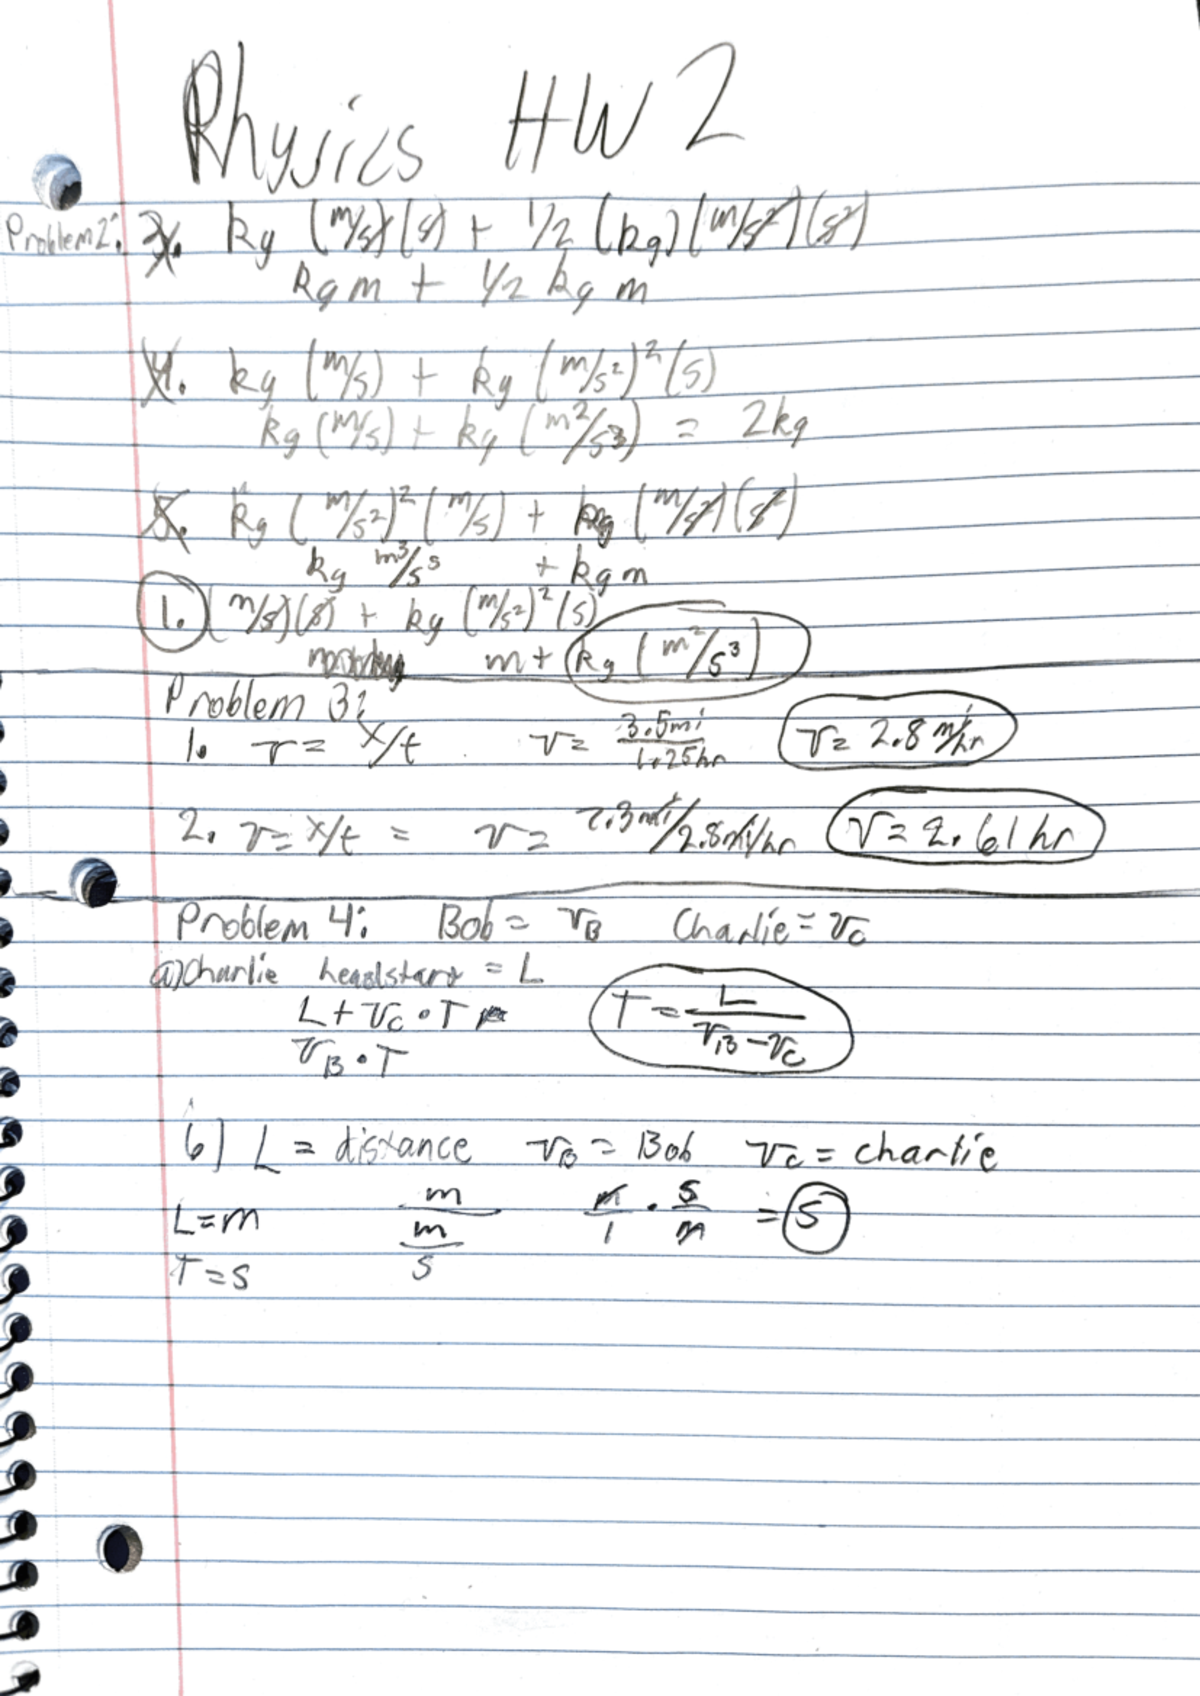 Physics HW 2
Problem 2: 3. kg (m/s)(s) + 1/2 (kg)(m/s²)(s²)
kgm + 1/2 kg m
4. kg (m/s) + kg (m/s²)²(s)
kg (m/s) + kg (m²/s3) = 2kg
5. kg (m/s²)²(m/s) + kg (m/s²)(s²)
kg m³/s⁵ + kgm
1. (m/s)(s) + kg (m/s²)²(s)
m + kg (m²/s³)
Problem 3:
1. v = x/t v = 3.5mi/1.25hr v = 2.8 mi/hr
2. v = x/t = v = 7.3mi/2.8mi/hr v = 2.61 hr
Problem 4: Bob = vB Charlie = vc
a) Charlie headstart = L
L + vc • T
vB • T
T = L/vB - vc
b) L = distance vB = Bob vc = charlie
L = m m/m/s m/1 • s/m = s
T = s